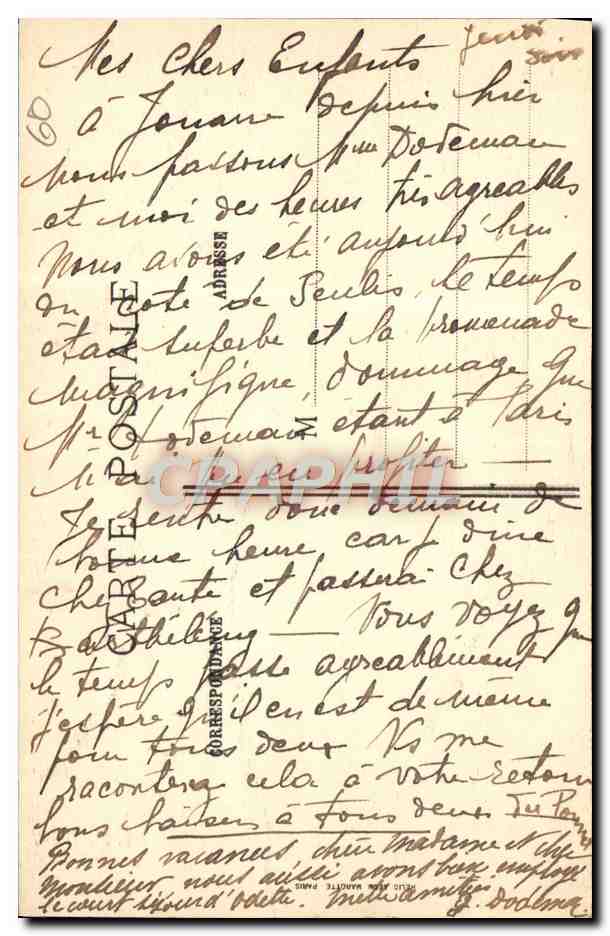 jeudi
soir
60
Mes chers Enfants
à Jouarre depuis hier
nous passons Mme Dodeman
et moi des heures très agréables
Nous avons été aujourd'hui
du côté de Senlis, le temps
était superbe et la promenade
magnifique, dommage que
Mr Dodeman étant à Paris
n'ait pu en profiter —
Je rentre donc demain de
bonne heure car je dîne
chez et passerai chez
Barthélemy — Vous voyez que
le temps passe agréablement
j'espère qu'il en est de même
pour tous deux Vs me
raconterez cela à votre retour
bons baisers à tous deux
Bonnes vacances chère Madame et cher
Monsieur nous aussi avons bien employé
le court séjour d'Odette. Mille amitiés
Dodeman
CARTE POSTALE
CORRESPONDANCE
ADRESSE
M
CPAPHIL
MARGITTE PARIS